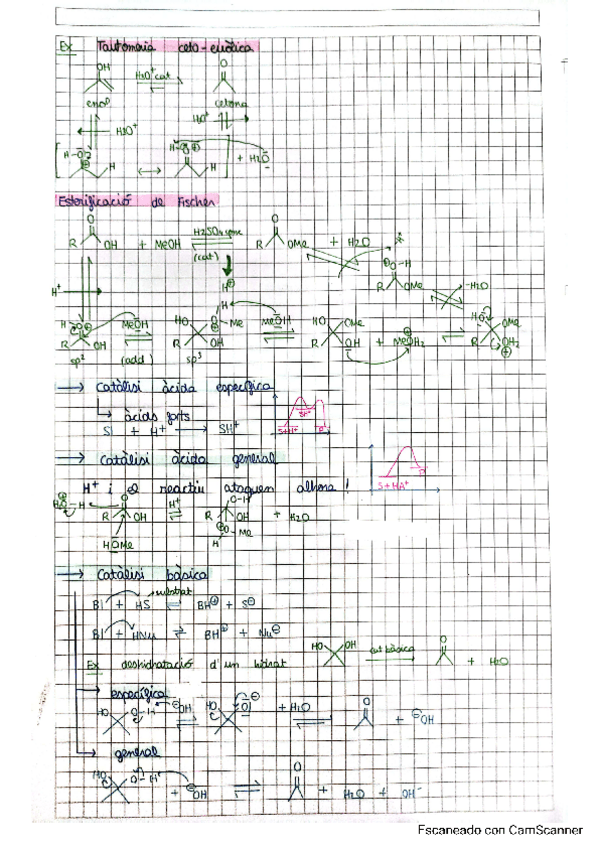 Ex Tautomeria ceto-enòlica
OH O
H3O+ cat
enol cetona
H3O+ H3O+
+ H2O
Esterificació de Fischer
R OH + MeOH H2SO4 conc (cat) R OMe + H2O
R OMe -H2O
H+
MeOH (add) HO R OH Me MeOH HO OMe R OH + MeOH2 HO OMe R OH2
sp2 sp3
→ Catàlisi àcida específica
↳ àcids forts
S + H+ → SH+
S+H+ SH+ P
→ Catàlisi àcida general
H+ i el reactiu ataquen alhora!
S+HA+ P
R OH H+ R OH + H2O
HOMe
→ Catàlisi bàsica
substrat
B| + HS ⇌ BH⊕ + S⊖
B| + HNu ⇌ BH⊕ + Nu⊖
Ex deshidratació d'un hidrat HO OH cat bàsica O + H2O
→ específica
HO O-H ⊖OH ⇌ HO O| ⊖ + H2O ⇌ O + ⊖OH
→ general
HO O-H + ⊖OH ⇌ O + H2O + OH⁻
Escaneado con CamScanner